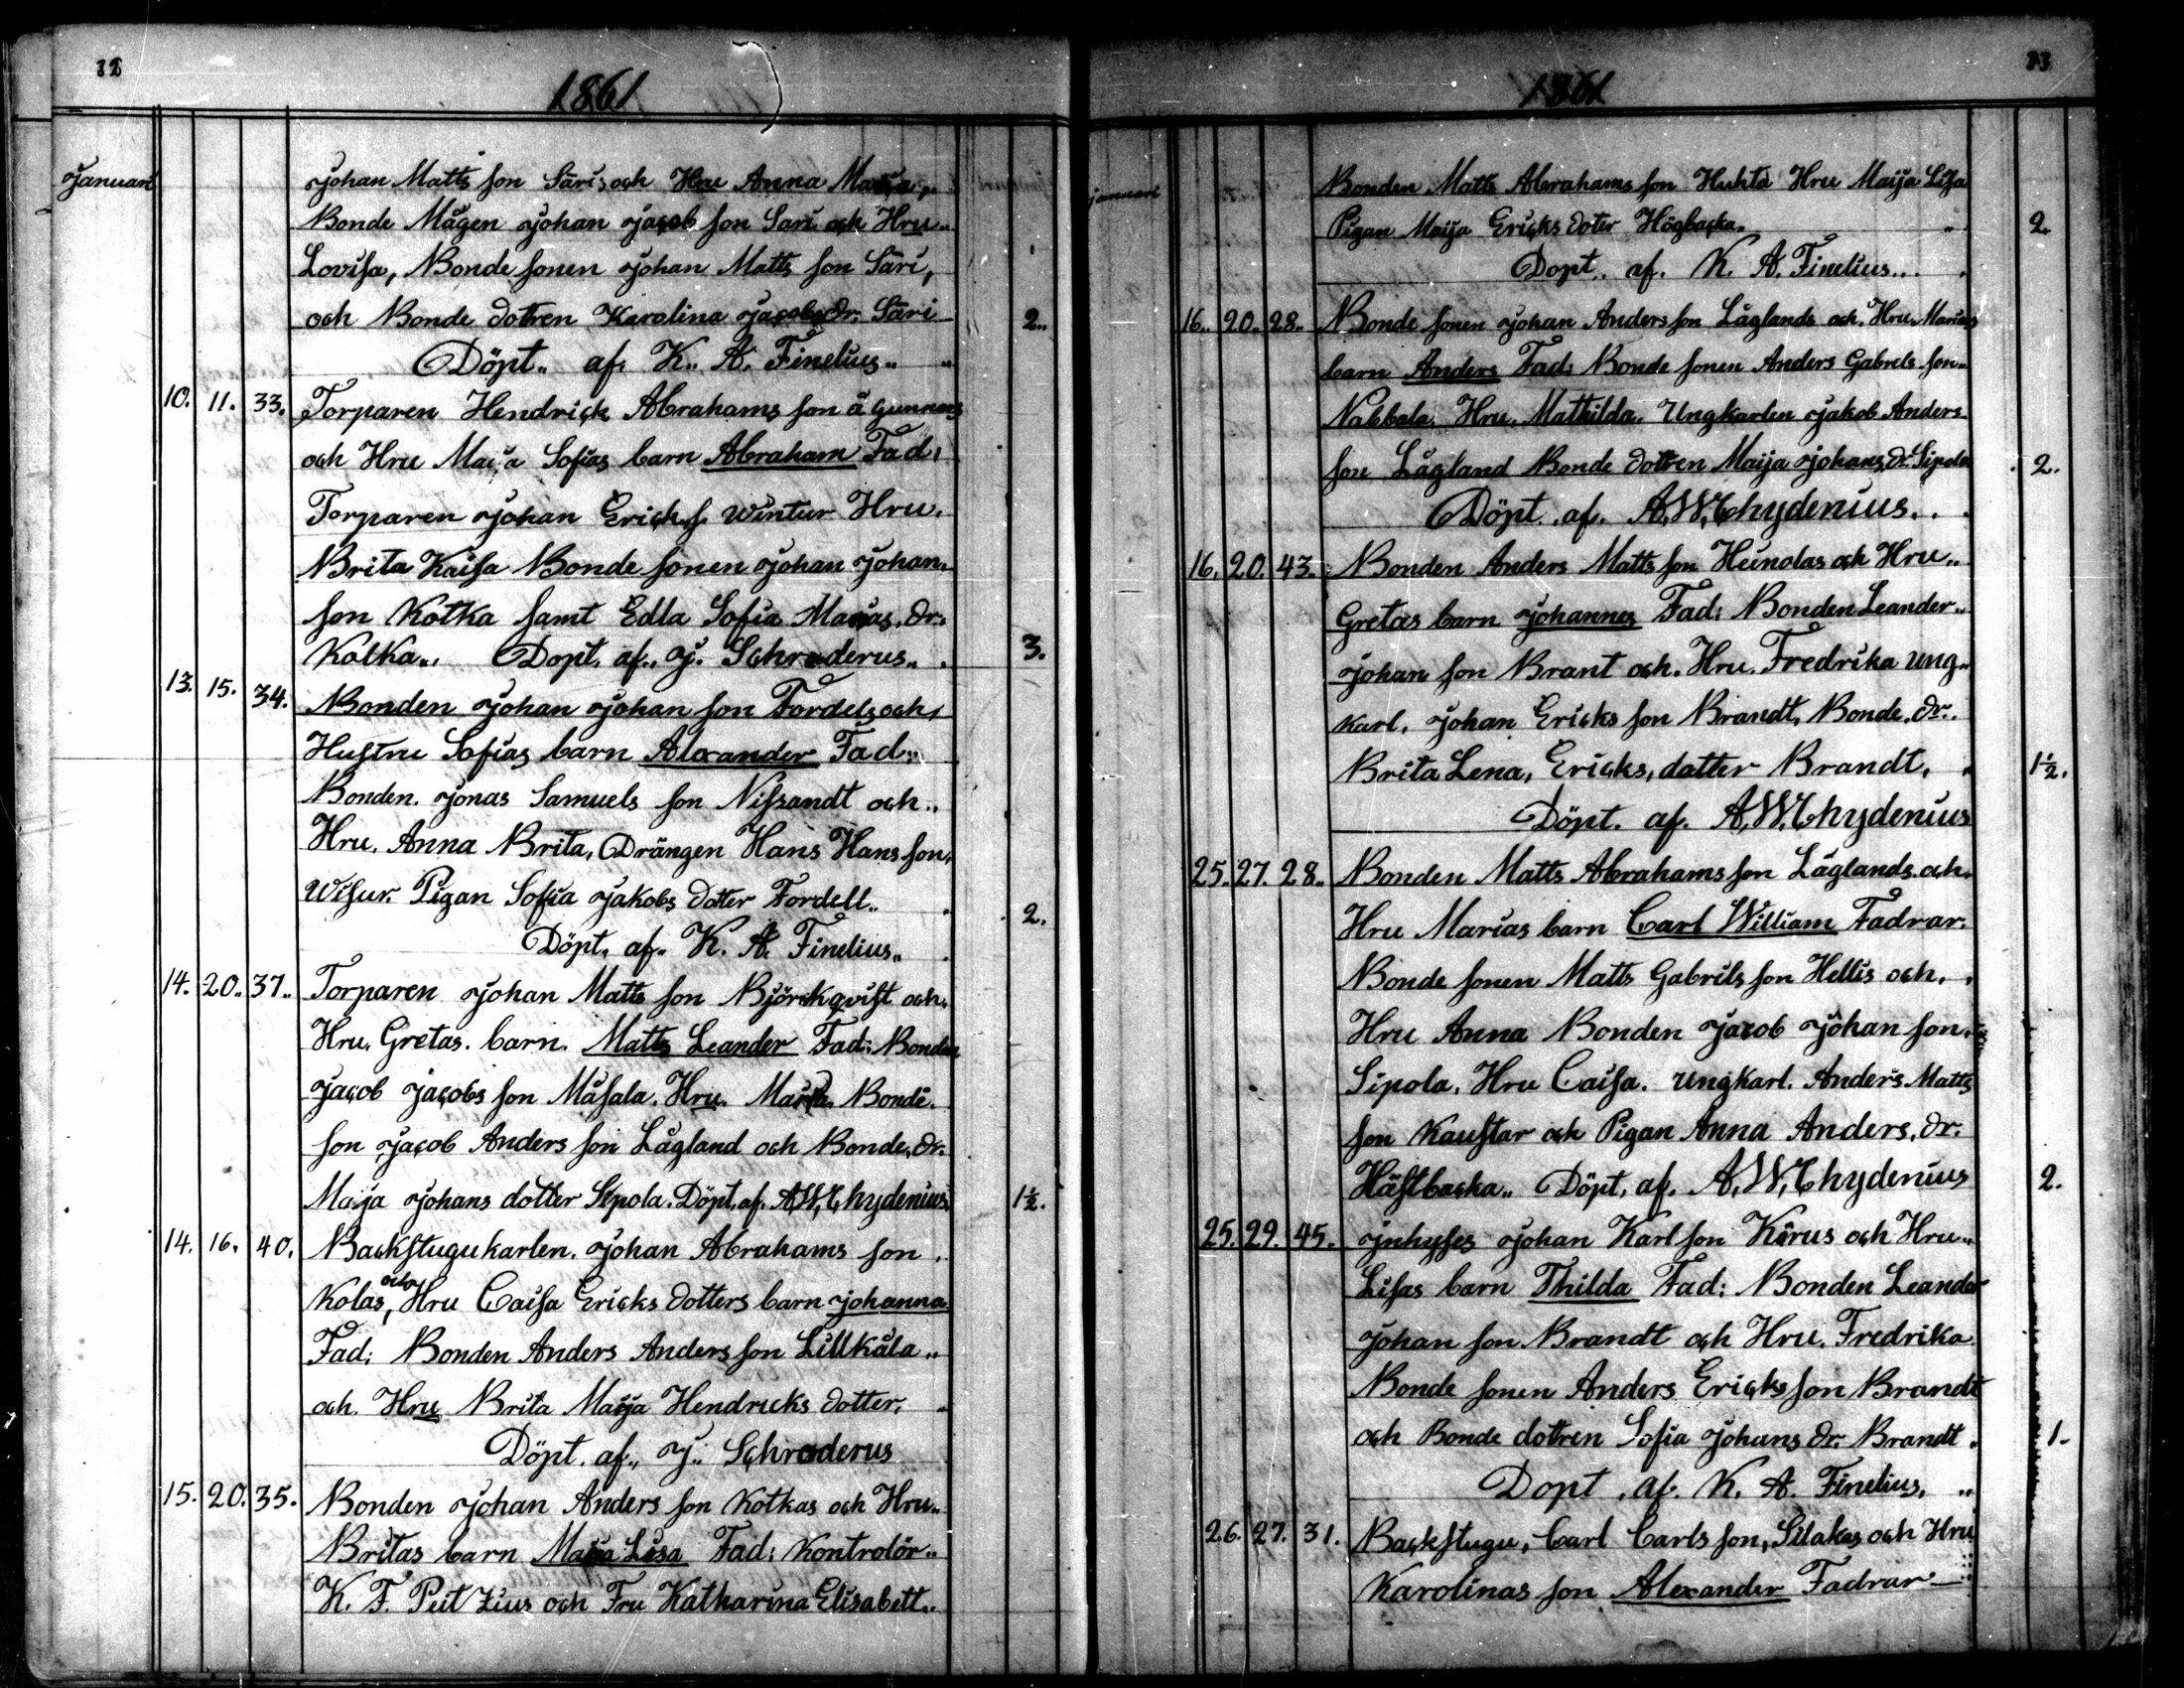 32
1861
Januari
Johan Matts son Säris och Hru Anna Maria,
Bonde Mågen Johan Jacob son Sari och Hru
Lovisa, Bonde sonen Johan Matts son Säri,
och Bonde dotren Karolina Jacobs dr. Säri 2..
Döpt.. af. K.. A. Finelius..
10. 11. 33. Torparen Hendrick Abrahams son å Gunnars
och Hru Maija Sofias barn Abraham Fad:
Torparen Johan Ericks s. Wintur Hru.
Brita Kaisa Bonde sonen Johan Johan.
son Kotka samt Edla Sofia Marias. dr.
Kotka.. Dopt. af.. J. Schroderus.. 3.
13. 15. 34. Bonden Johan Johan son Fordels och
Hustru Sofias barn Alexander Fad:
Bonden. Jonas Samuels son Nissandt och..
Hru. Anna Brita, Drängen Hans Hans son,
Wisur. Pigan Sofia Jakobs dotter Fordell.. 2.
Döpt. af. K. A. Finelius..
14. 20.. 37.. Torparen Johan Matts son Björckqvist och.
Hru. Gretas. barn. Matts Leander Fad: Bonden
Jacob Jacobs son Måsala. Hru. Maria. Bonde.
son Jacob Anders son Lågland och Bonde. dr.
Maija Johans dotter Sipola. Döpt. af. A. W. Chydenius. 1½.
14. 16. 40. Backstugukarlen. Johan Abrahams son.
Kolas, och Hru Caisa Ericks dotters barn Johanna
Fad: Bonden Anders Anders son Lillkåla..
och. Hru Brita Maija Hendricks dotter.
Döpt. af.. J.. Schroderus
15. 20. 35. Bonden Johan Anders son Kotkas och Hru..
Britas barn Maija Lisa Fad: Kontrolör..
K. F. Peitzius och Fru Katharina Elisabett..
33
1861
januari
Bonden Matts Abrahams son Huhta Hru Maija Lisa
Pigan Maija Ericks doter Högbacka. 2.
Dopt.. af. K. A. Finelius...
16.. 20.. 28.. Bonde sonen Johan Anders son Låglands och. Hru. Marias
barn Anders Fad: Bonde sonen Anders Gabrels son..
Nabbala. Hru. Mathilda. Ungkarlen Jakob Anders
son Lågland Bonde dotren Maija Johans. dr. Sipola 2.
Döpt. af. A. W. Chydenius..
16. 20. 43. Bonden Anders Matts son Heinolas och Hru..
Gretas barn Johannes Fad: Bonden Leander..
Johan son Brant och. Hru. Fredrika Ung..
karl. Johan Ericks son Brandt. Bonde. dr.
Brita Lena, Ericks, datter Brandt. 1½.
Döpt. af. A. W. Chydenius
25. 27. 28.. Bonden Matts Abrahams son Låglands. och.
Hru Marias barn Carl William Fadrar.
Bonde sonen Matts Gabrils son Hellis och.
Hru Anna Bonden Jacob Johan son.
Sipola. Hru Caisa. Ungkarl. Anders Matts
son Kaustar och Pigan Anna Anders. dr.
Hästbacka.. Döpt. af. A. W. Chydenius 2.
25. 29. 45. Jnhyses Johan Karl son Kårus och Hru..
Lisas barn Thilda Fad: Bonden Leander
Johan son Brandt och Hru. Fredrika
Bonde sonen Anders Ericks son Brandt
och Bonde dotren Sofia Johans dr. Brandt. 1.
Dopt. af. K. A. Finelius. ..
26. 27. 31. Backstugu, Carl Carls son, Silakas och Hru
Karolinas son Alexander Fadrar